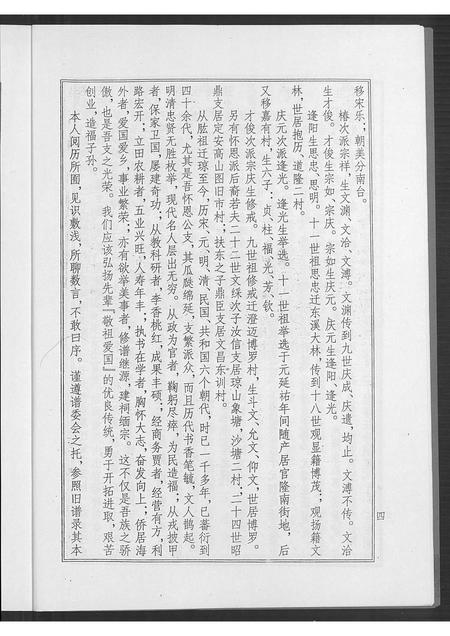 移宋乐；朝美分南台。
椿次派宗祥，生文渊、文洽、文溥。文渊传到九世庆成、庆遣，均止。文溥不传。文洽
生才俊。才俊生宗如、宗庆。宗如生庆元。庆元生逢阳、逢光。
逢阳生思忠、思明。十一世祖思忠迁东溪大林，传到十八世观显籍博茂；观扬籍文
林，世居抱历、道隆二村。
庆元次派逢光。逢光生举选。十一世祖举选于元延祐年间随产居官隆南街地，后
又移嘉有村，生六子：贞、柱、福、光、芳、钦。
才俊次派宗庆生修戒。九世祖修戒迁澄迈博罗村，生斗文、允文、仰文，世居博罗。
另有怀恩派后裔若夫二十二世文𬘓次子汝信支居琼山象塘，沙塘二村，二十四世昭
鼎支居定安高山图旧市村；扶东之子鼎臣支居文昌东训村。
从肱祖迁琼至今，历宋、元、明、清、民国、共和国六个朝代，时已一千多年，已蕃衍到
四十余代，尤其是吾怀恩公支，其瓜瓞绵延，支繁派众，而且历代书香笔毓，文人鹊起。
明清忠贤无胜枚举，现代名人层出无穷。从政为官者，鞠躬尽瘁，为民造福；从戎披甲
者，保家卫国，屡建奇功；从教科研者，李香桃红，成果丰硕；经商务贾者，经营有方，利
路宏开；立田农耕者，五业兴旺，人寿年丰；执书在学者，胸怀大志，奋发向上；侨居海
外者，爱国爱乡，事业繁荣；亦有欲举美事者，修谱继源，建祠缅宗。这不仅是吾族之骄
傲，也是吾支之光荣。我们应该弘扬先辈『敬祖爱国』的优良传统，勇于开拓进取，艰苦
创业，造福子孙。
本人阅历所囿，见识敷浅，所聊数言，不敢曰序。谨遵谱委会之托，参照旧谱录其本
四